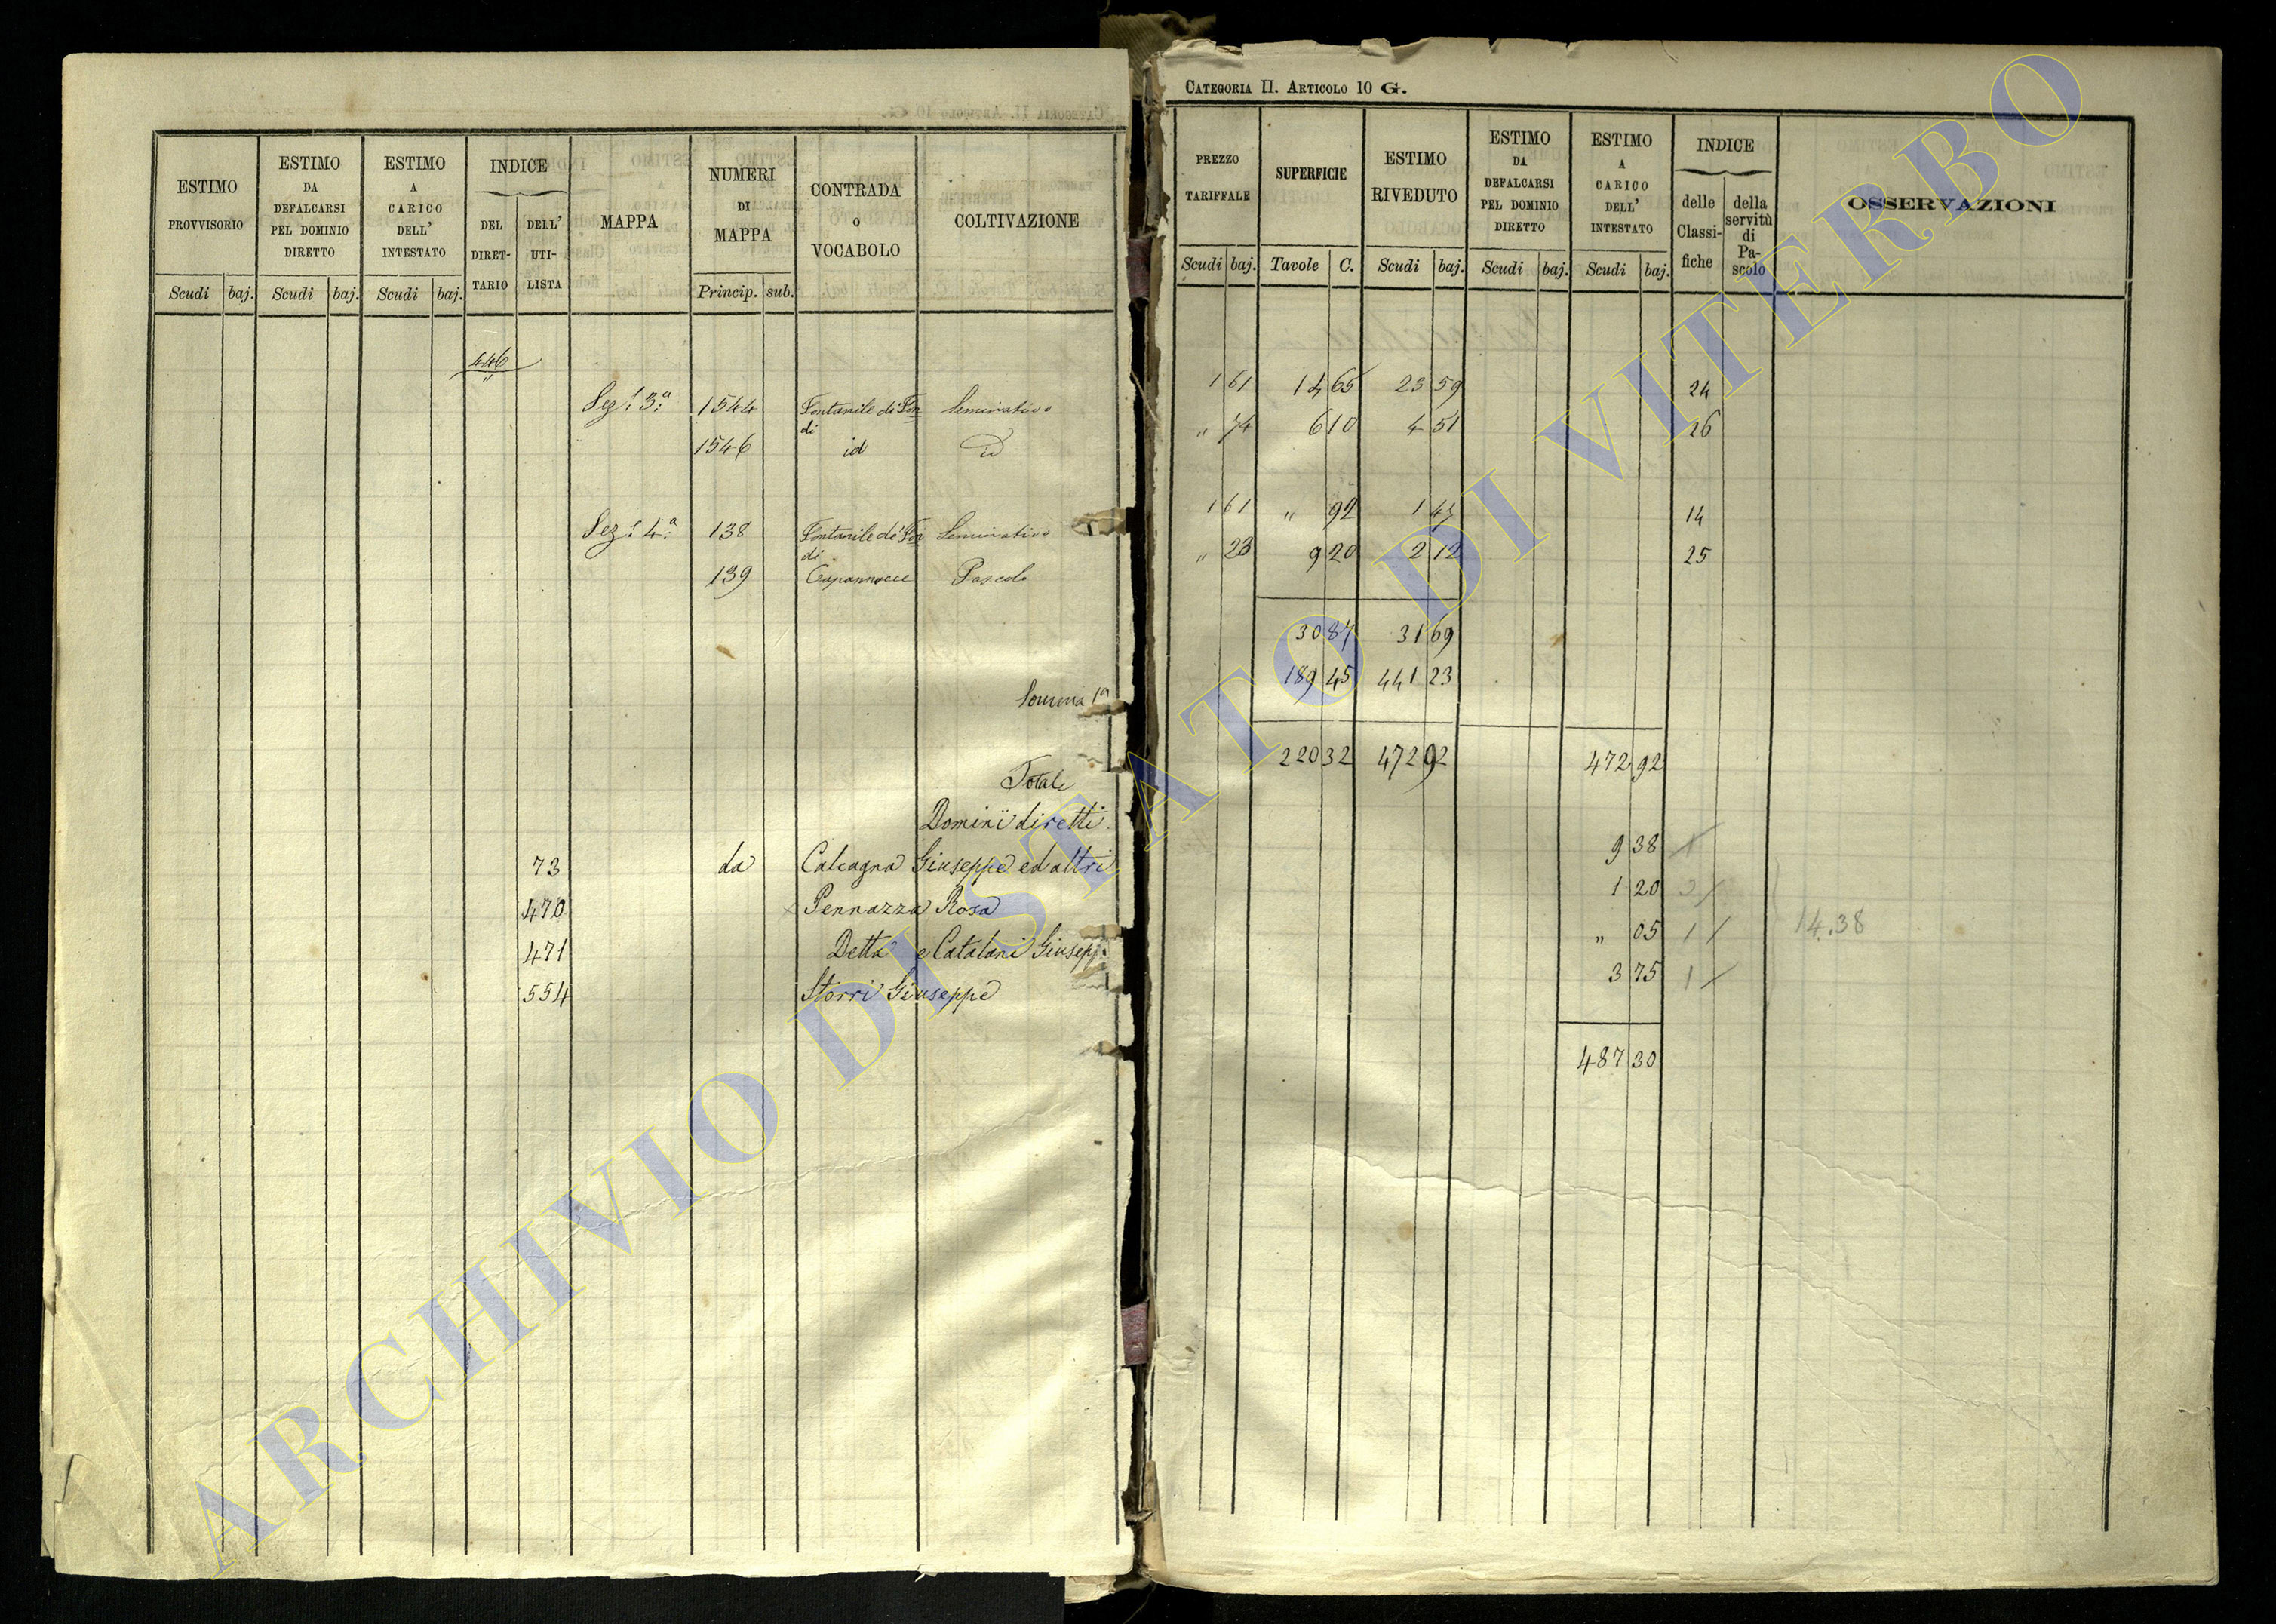 CATEGORIA II. ARTICOLO 10 G.
ESTIMO PROVVISORIO
Scudi baj.
ESTIMO DA DEFALCARSI PEL DOMINIO DIRETTO
Scudi baj.
ESTIMO A CARICO DELL' INTESTATO
Scudi baj.
INDICE
DEL DIRET-
TARIO
DELL' UTI-
LISTA
MAPPA
NUMERI DI MAPPA
Princip. sub.
CONTRADA o VOCABOLO
COLTIVAZIONE
PREZZO TARIFFALE
Scudi baj.
SUPERFICIE
Tavole C.
ESTIMO RIVEDUTO
Scudi baj.
ESTIMO DA DEFALCARSI PEL DOMINIO DIRETTO
Scudi baj.
ESTIMO A CARICO DELL' INTESTATO
Scudi baj.
INDICE
delle Classi-
fiche
della servitù di Pa-
scolo
OSSERVAZIONI
446
"
Sez. 3ª 1544 Fontanile di Fon Seminativo 1 61 14 65 23 59 24
di
1546 id id " 74 6 10 4 51 26
Sez. 4ª 138 Fontanile di Fon Seminativo 1 61 " 92 1 47 14
di
139 Capannacce Pascolo " 23 9 20 2 12 25
30 87 31 69
Somma 1ª 189 45 441 23
Totale 220 32 472 92 472 92
Dominii diretti
73 da Calcagna Giuseppe ed altri 9 38 1
470 Pennazza Rosa 1 20
471 Detta e Catalani Giusepp. " 05 1 14.38
554 Storri Giuseppe 3 75 1
487 30
ARCHIVIO DI STATO DI VITERBO